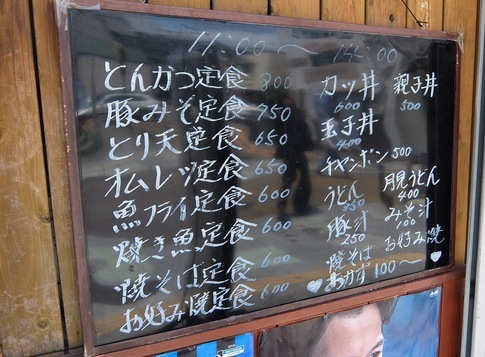 11:00～14:00
とんかつ定食 800
豚みそ定食 750
とり天定食 650
オムレツ定食 650
魚フライ定食 600
焼き魚定食 600
焼そば定食 600
お好み焼定食 600
カツ丼 600
親子丼 500
玉子丼 400
チャンポン 500
うどん 350
月見うどん 400
豚汁 250
みそ汁 100
焼そば
お好み焼
♡おかず 100～♡